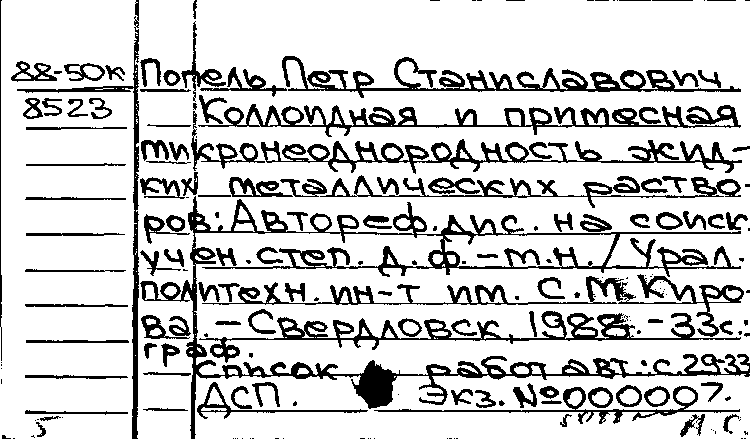 88-50к Попель, Петр Станиславович.
8523 Коллоидная и примесная
микронеоднородность жид-
ких металлических раство-
ров: Автореф. дис. на соиск.
учен. степ. д. ф.-т.н. / Урал.
политехн. ин-т им. С.М Киро-
ва. - Свердловск, 1988. - 33с.:
граф.
список работ авт.: с. 29-33
ДСП. Экз. №000007.